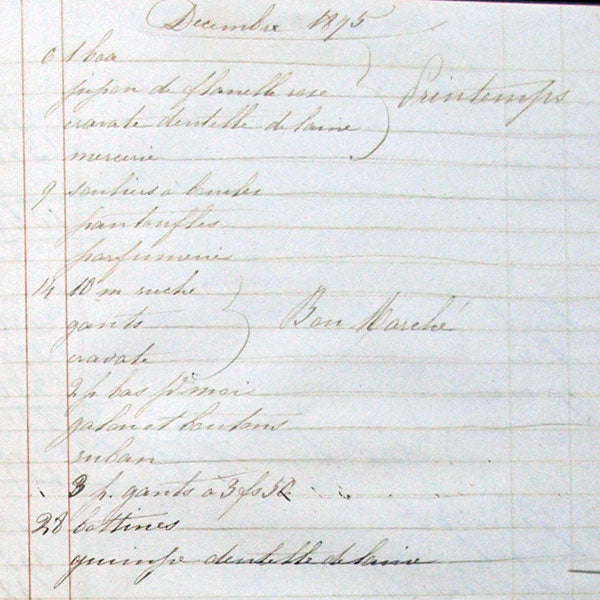 Decembre 1875
6 1 boa
jupon de flanelle rose
cravate dentelle de laine
mercerie
Printemps
9 souliers a boucles
pantoufles
parfumerie
14 10 m ruche
gants
cravate
Bon Marché
2 p. bas
galon et boutons
ruban
3 p. gants a 3 fs 50
28 bottines
guimpe dentelle de laine